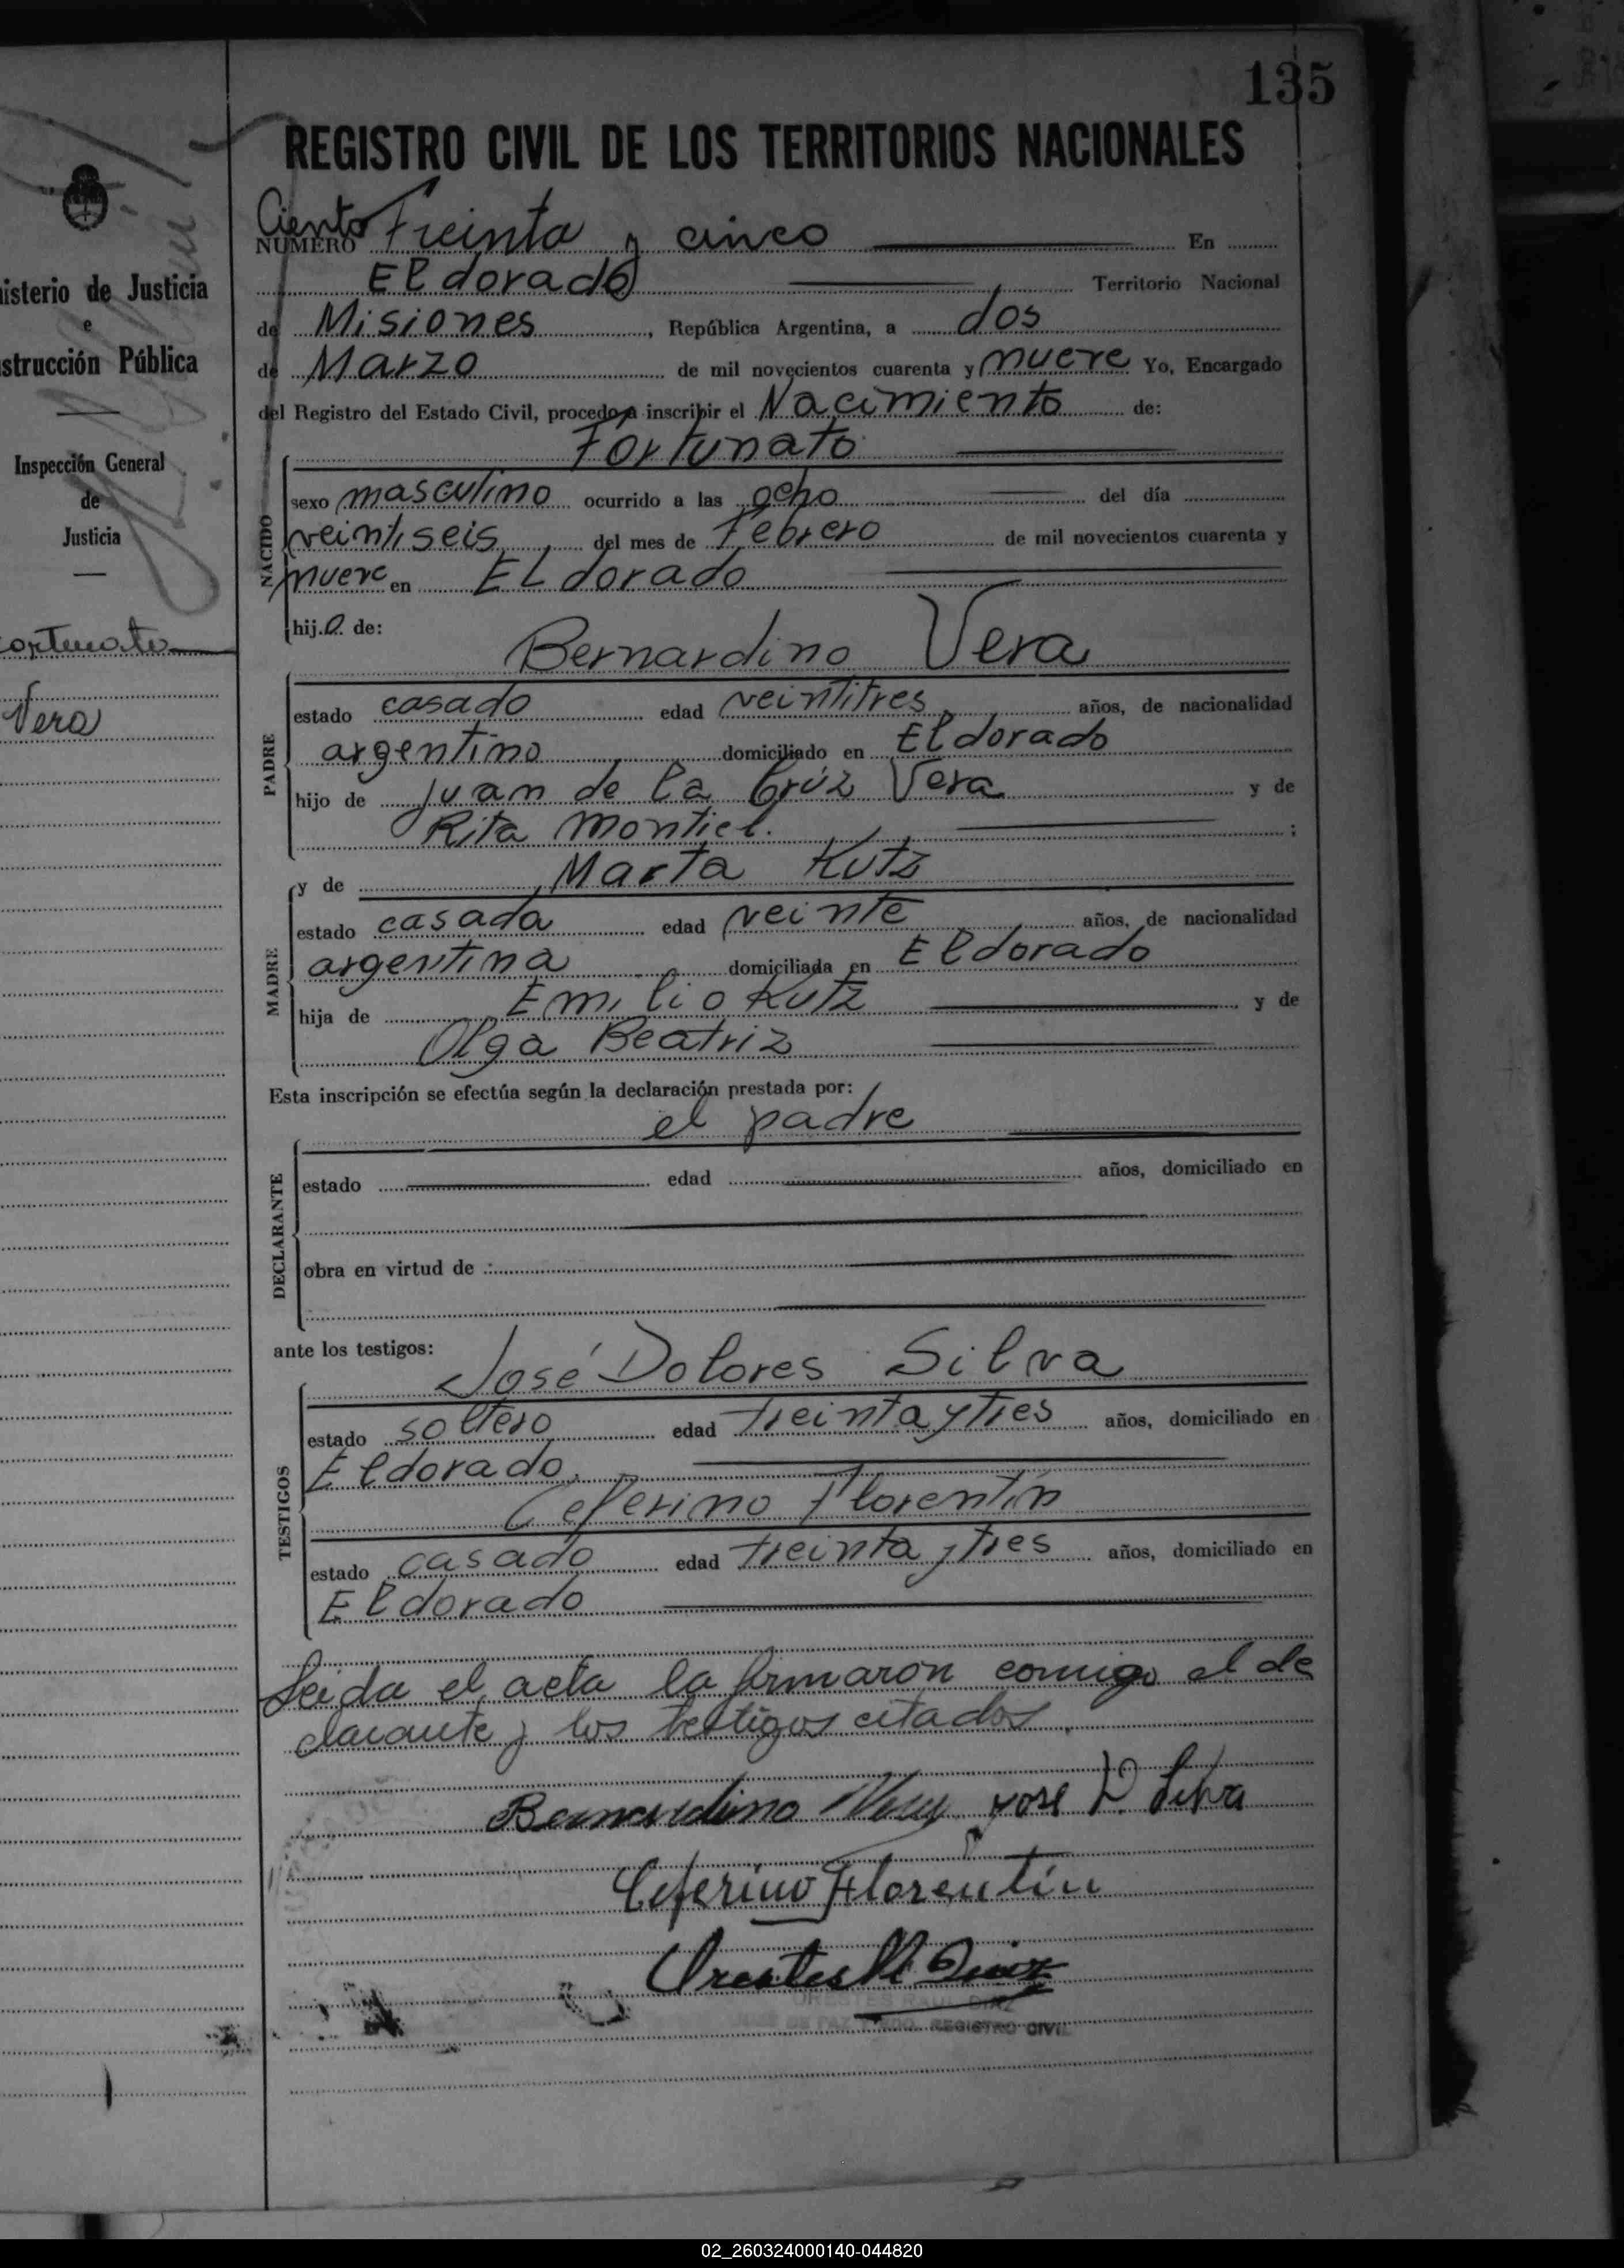 135
REGISTRO CIVIL DE LOS TERRITORIOS NACIONALES
Ciento
NUMERO Treinta y cinco En
Eldorado Territorio Nacional
de Misiones, República Argentina, a dos
de Marzo de mil novecientos cuarenta y nueve Yo, Encargado
del Registro del Estado Civil, procedo a inscribir el Nacimiento de:
Fortunato
NACIDO
sexo masculino ocurrido a las ocho del día
veintiseis del mes de Febrero de mil novecientos cuarenta y
nueve en ELdorado
hij.o. de:
Bernardino Vera
PADRE
estado casado edad veintitres años, de nacionalidad
argentino domiciliado en Eldorado
hijo de Juan de la Crúz Vera y de
Rita Montiel. ;
y de Marta Kutz
MADRE
estado casada edad veinte años, de nacionalidad
argentina domiciliada en Eldorado
hija de Emilio Kutz y de
Olga Beatriz
Esta inscripción se efectúa según la declaración prestada por:
el padre
DECLARANTE
estado edad años, domiciliado en
obra en virtud de :
ante los testigos:
José Dolores Silva
TESTIGOS
estado soltero edad treinta y tres años, domiciliado en
Eldorado.
Ceferino Florentín
estado casado edad treinta y tres años, domiciliado en
Eldorado
Leida el acta la firmaron comigo el de
clarante y los testigos citados.
Bernardino Vera Jose D. Silva
Ceferino Florentín
Orestes R Diaz
ORESTES RAUL DIAZ
JUEZ DE PAZ REGISTRO CIVIL
isterio de Justicia
e
strucción Pública
Inspección General
de
Justicia
ortunato
Vera
02_260324000140-044820